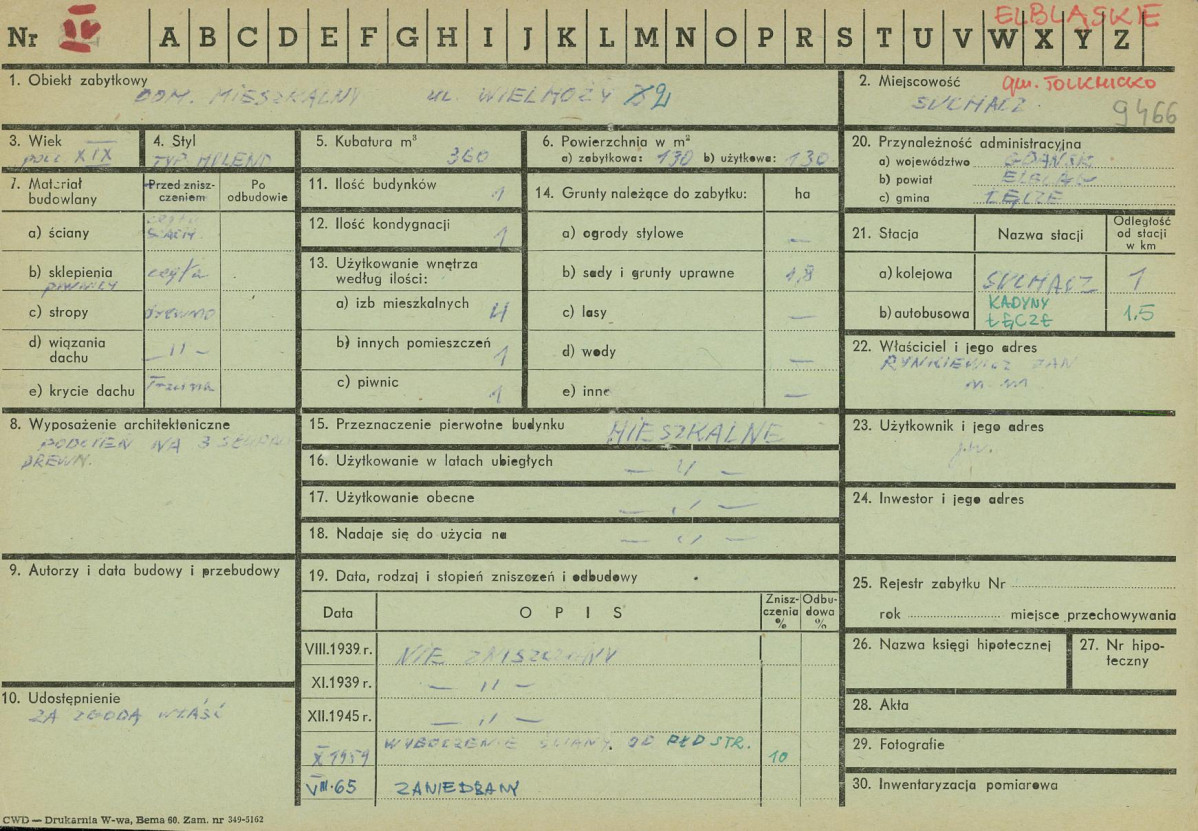 ELBLĄSKIE
Nr IV A B C D E F G H I J K L M N O P R S T U V W X Y Z
1. Obiekt zabytkowy
DOM. MIESZKALNY ul. WIELMOŻY
2. Miejscowość gm. TOLKMICKO
SUCHACZ
9466
3. Wiek
poł. XIX
4. Styl
TYP. HOLEND
5. Kubatura m³
360
6. Powierzchnia w m²
a) zabytkowa: 130 b) użytkowa: 130
20. Przynależność administracyjna
a) województwo GDAŃSK
b) powiat ELBLĄG
c) gmina ŁĘCZE
7. Materiał budowlany
Przed zniszczeniem
Po odbudowie
a) ściany
b) sklepienia cegła
piwnicy
c) stropy drewno
d) wiązania dachu — " —
e) krycie dachu Trzcina
11. Ilość budynków 1
12. Ilość kondygnacji 1
13. Użytkowanie wnętrza
według ilości:
a) izb mieszkalnych 4
b) innych pomieszczeń 1
c) piwnic 1
14. Grunty należące do zabytku: ha
a) ogrody stylowe —
b) sady i grunty uprawne 1,8
c) lasy —
d) wody —
e) inne —
21. Stacja
Nazwa stacji
Odległość od stacji w km
a) kolejowa SUCHACZ 1
b) autobusowa KADYNY
ŁĘCZE 1,5
22. Właściciel i jego adres
RYNKIEWICZ JAN
8. Wyposażenie architektoniczne
PODCIEŃ NA 3
DREWN.
15. Przeznaczenie pierwotne budynku MIESZKALNE
16. Użytkowanie w latach ubiegłych — " —
17. Użytkowanie obecne — " —
18. Nadaje się do użycia na — " —
23. Użytkownik i jego adres
j.w.
24. Inwestor i jego adres
9. Autorzy i data budowy i przebudowy
19. Data, rodzaj i stopień zniszczeń i odbudowy
Data
OPIS
Zniszczenia %
Odbudowa %
VIII.1939 r. NIE ZNISZCZONY
XI.1939 r. — " —
XII.1945 r. — " —
X 1959 WYBOCZENIE ŚCIANY OD PŁD STR. 10
VIII.65 ZANIEDBANY
10. Udostępnienie
ZA ZGODĄ WŁAŚĆ
25. Rejestr zabytku Nr
rok miejsce przechowywania
26. Nazwa księgi hipotecznej
27. Nr hipoteczny
28. Akta
29. Fotografie
30. Inwentaryzacja pomiarowa
CWD — Drukarnia W-wa, Bema 60. Zam. nr 349-5162